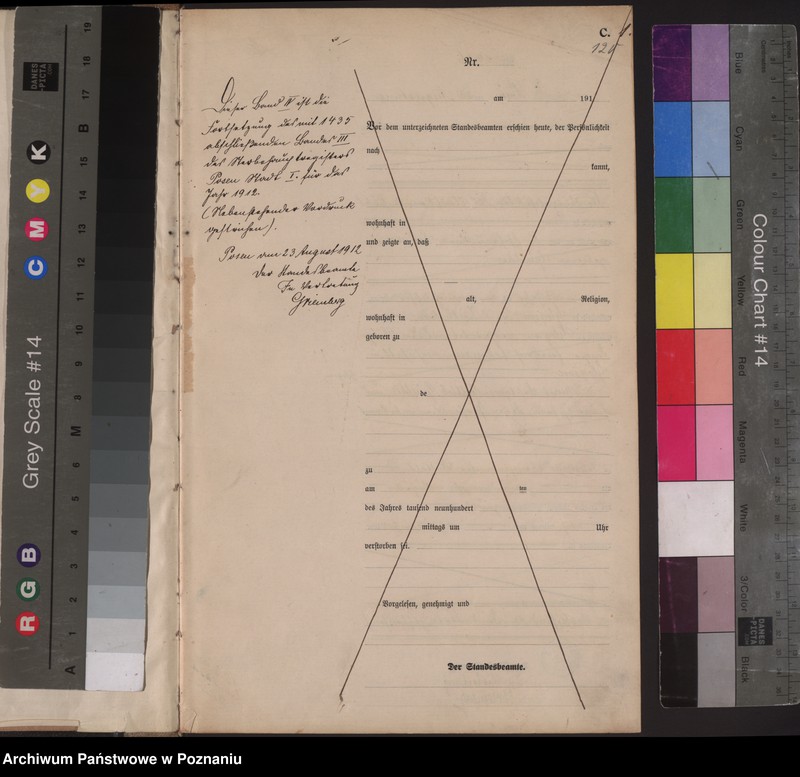 C. 1.
Nr.
am 191
Dieser Band IV ist die
Fortsetzung des mit 1435
abschließenden Bandes III
des Sterbehauptregisters
Posen Stadt I. für das
Jahr 1912.
(Nebenstehender Vordruck
gestrichen).
Posen am 23 August 1912
Der Standesbeamte
In Vertretung
Vor dem unterzeichneten Standesbeamten erschien heute, der Persönlichkeit
nach
kannt,
wohnhaft in
und zeigte an, daß
alt, Religion,
wohnhaft in
geboren zu
de
zu
am
des Jahres tausend neunhundert
mittags um Uhr
verstorben sei.
Vorgelesen, genehmigt und
Der Standesbeamte.
Grey Scale #14
R G B C M Y K
A 1 2 3 4 5 6 M 8 9 10 11 12 13 14 15 B 17 18 19
DANES
-PICTA
Colour Chart #14
Blue
Cyan
Green
Yellow
Red
Magenta
White
3/Color
Black
DANES
-PICTA
Archiwum Państwowe w Poznaniu